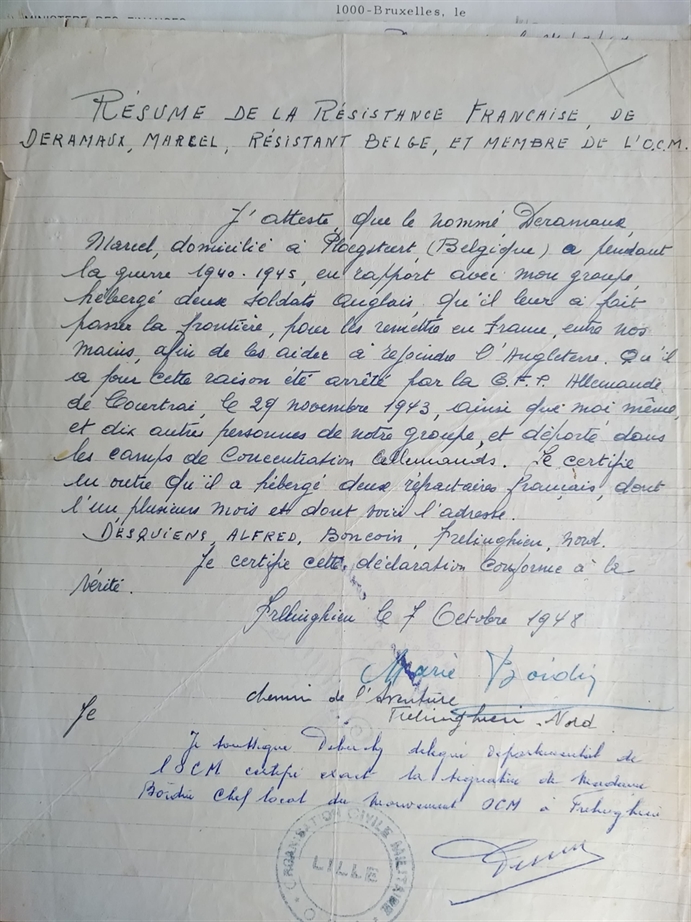 1000-Bruxelles, le
MINISTERE DES FINANCES
RÉSUME DE LA RÉSISTANCE FRANCAISE, DE
DERAMAUX, MARCEL, RÉSISTANT BELGE, ET MEMBRE DE L'O.C.M.
J'atteste, que le nommé, Deramaux,
Marcel, domicilié à Ploegsteert, (Belgique) a pendant
la guerre 1940-1945, en rapport avec mon groupe,
hébergé deux soldats anglais, qu'il leur a fait
passer la frontière, pour les remettre en France, entre nos
mains, afin de les aider à rejoindre l'Angleterre. Qu'il
a pour cette raison été arrêté par la G.F.P. Allemande
de Courtrai, le 29 novembre 1943, ainsi que moi même,
et dix autres personnes de notre groupe, et déporté dans
les camps de Concentration Allemands. Je certifie
en outre qu'il a hébergé deux réfractaires français, dont
l'un plusieurs mois et dont voici l'adresse.
DESQUIENS, ALFRED, Boncoin, Frelinghien, Nord.
Je certifie cette déclaration conforme à la
Vérité.
Frelinghien le 7 Octobre 1948
Marie Boidin
chemin de l'Aventure
Frelinghien-Nord.
Je
Je soussigné délégué départemental de
l'OCM certifie exact la signature de Madame
Boidin chef local du Mouvement OCM à Frelinghien
ORGANISATION CIVILE MILITAIRE
LILLE